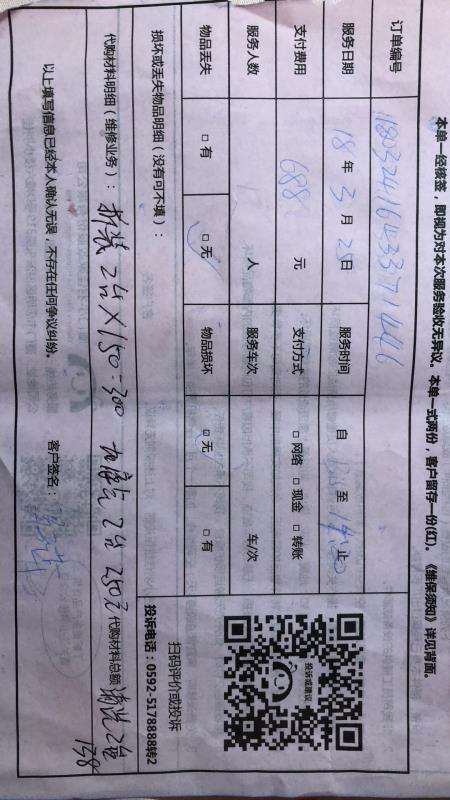 本单一经核签，即视为对本次服务验收无异议。本单一式两份，客户留存一份(红)。《维保须知》详见背面。
订单编号
服务日期 18 年 3 月 25 日 服务时间 自 至 止
支付费用 688 元 支付方式 □ 网络 □ 现金 □ 转账
服务人数 人 服务车次 车/次
物品丢失 □ 有 □ 无 物品损坏 □ 无 □ 有
损坏或丢失物品明细（没有可不填）：
投诉或建议
扫码评价或投诉
投诉电话：0592-5178888转2
代购材料明细（维修业务）：拆装 2台×150=300 加 2台 250元 代购材料总额 清洗2台
138
以上填写信息已经本人确认无误，不存在任何争议纠纷。 客户签名：